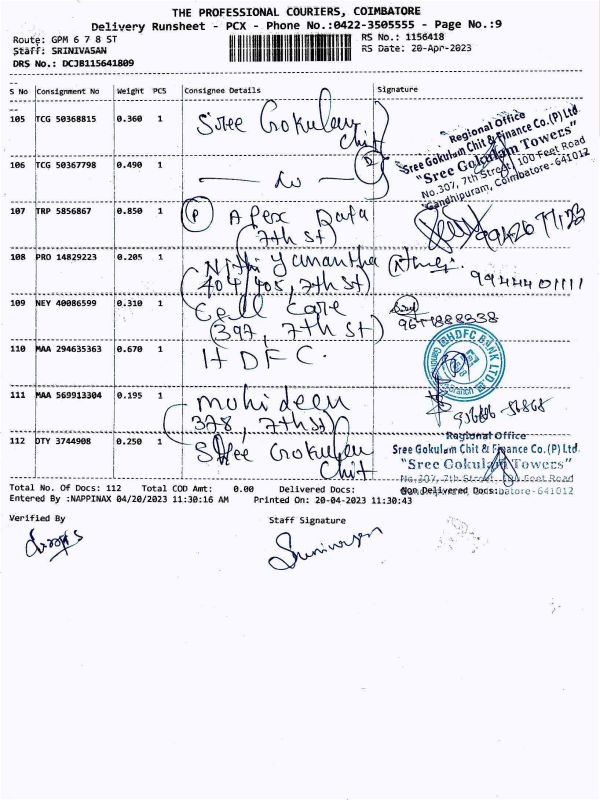 THE PROFESSIONAL COURIERS, COIMBATORE
Delivery Runsheet - PCX - Phone No.:0422-3505555 - Page No.:9
Route: GPM 6 7 8 ST
RS No.: 1156418
Staff: SRINIVASAN
RS Date: 20-Apr-2023
DRS No.: DCJB115641809
S No Consignment No Weight PCS Consignee Details Signature
105 TCG 50368815 0.360 1 Sree Gokulam
Chit
Regional Office
Sree Gokulam Chit & Finance Co.(P) Ltd.
"Sree Gokulam Towers"
No.307, 7th Street, 100 Feet Road
Gandhipuram, Coimbatore-641012
106 TCG 50367798 0.490 1
107 TRP 5856867 0.850 1 (P) Apex Data
(7th St)
108 PRO 14829223 0.205 1
404/405, 7th St)
9944401111
109 NEY 40086599 0.310 1 Cell Care
(397, 7th St)
110 MAA 294635363 0.670 1 HDFC.
HDFC BANK LTD
111 MAA 569913304 0.195 1 Mohideen
378, 7th St)
112 DTY 3744908 0.250 1 Sree Gokulam
Chit
Regional Office
Sree Gokulam Chit & Finance Co.(P) Ltd.
"Sree Gokulam Towers"
No.307, 7th Street, 100 Feet Road
Gandhipuram, Coimbatore-641012
Total No. Of Docs: 112 Total COD Amt: 0.00 Delivered Docs: Non Delivered Docs:
Entered By :NAPPINAX 04/20/2023 11:30:16 AM Printed On: 20-04-2023 11:30:43
Verified By
Staff Signature
Srinivasan